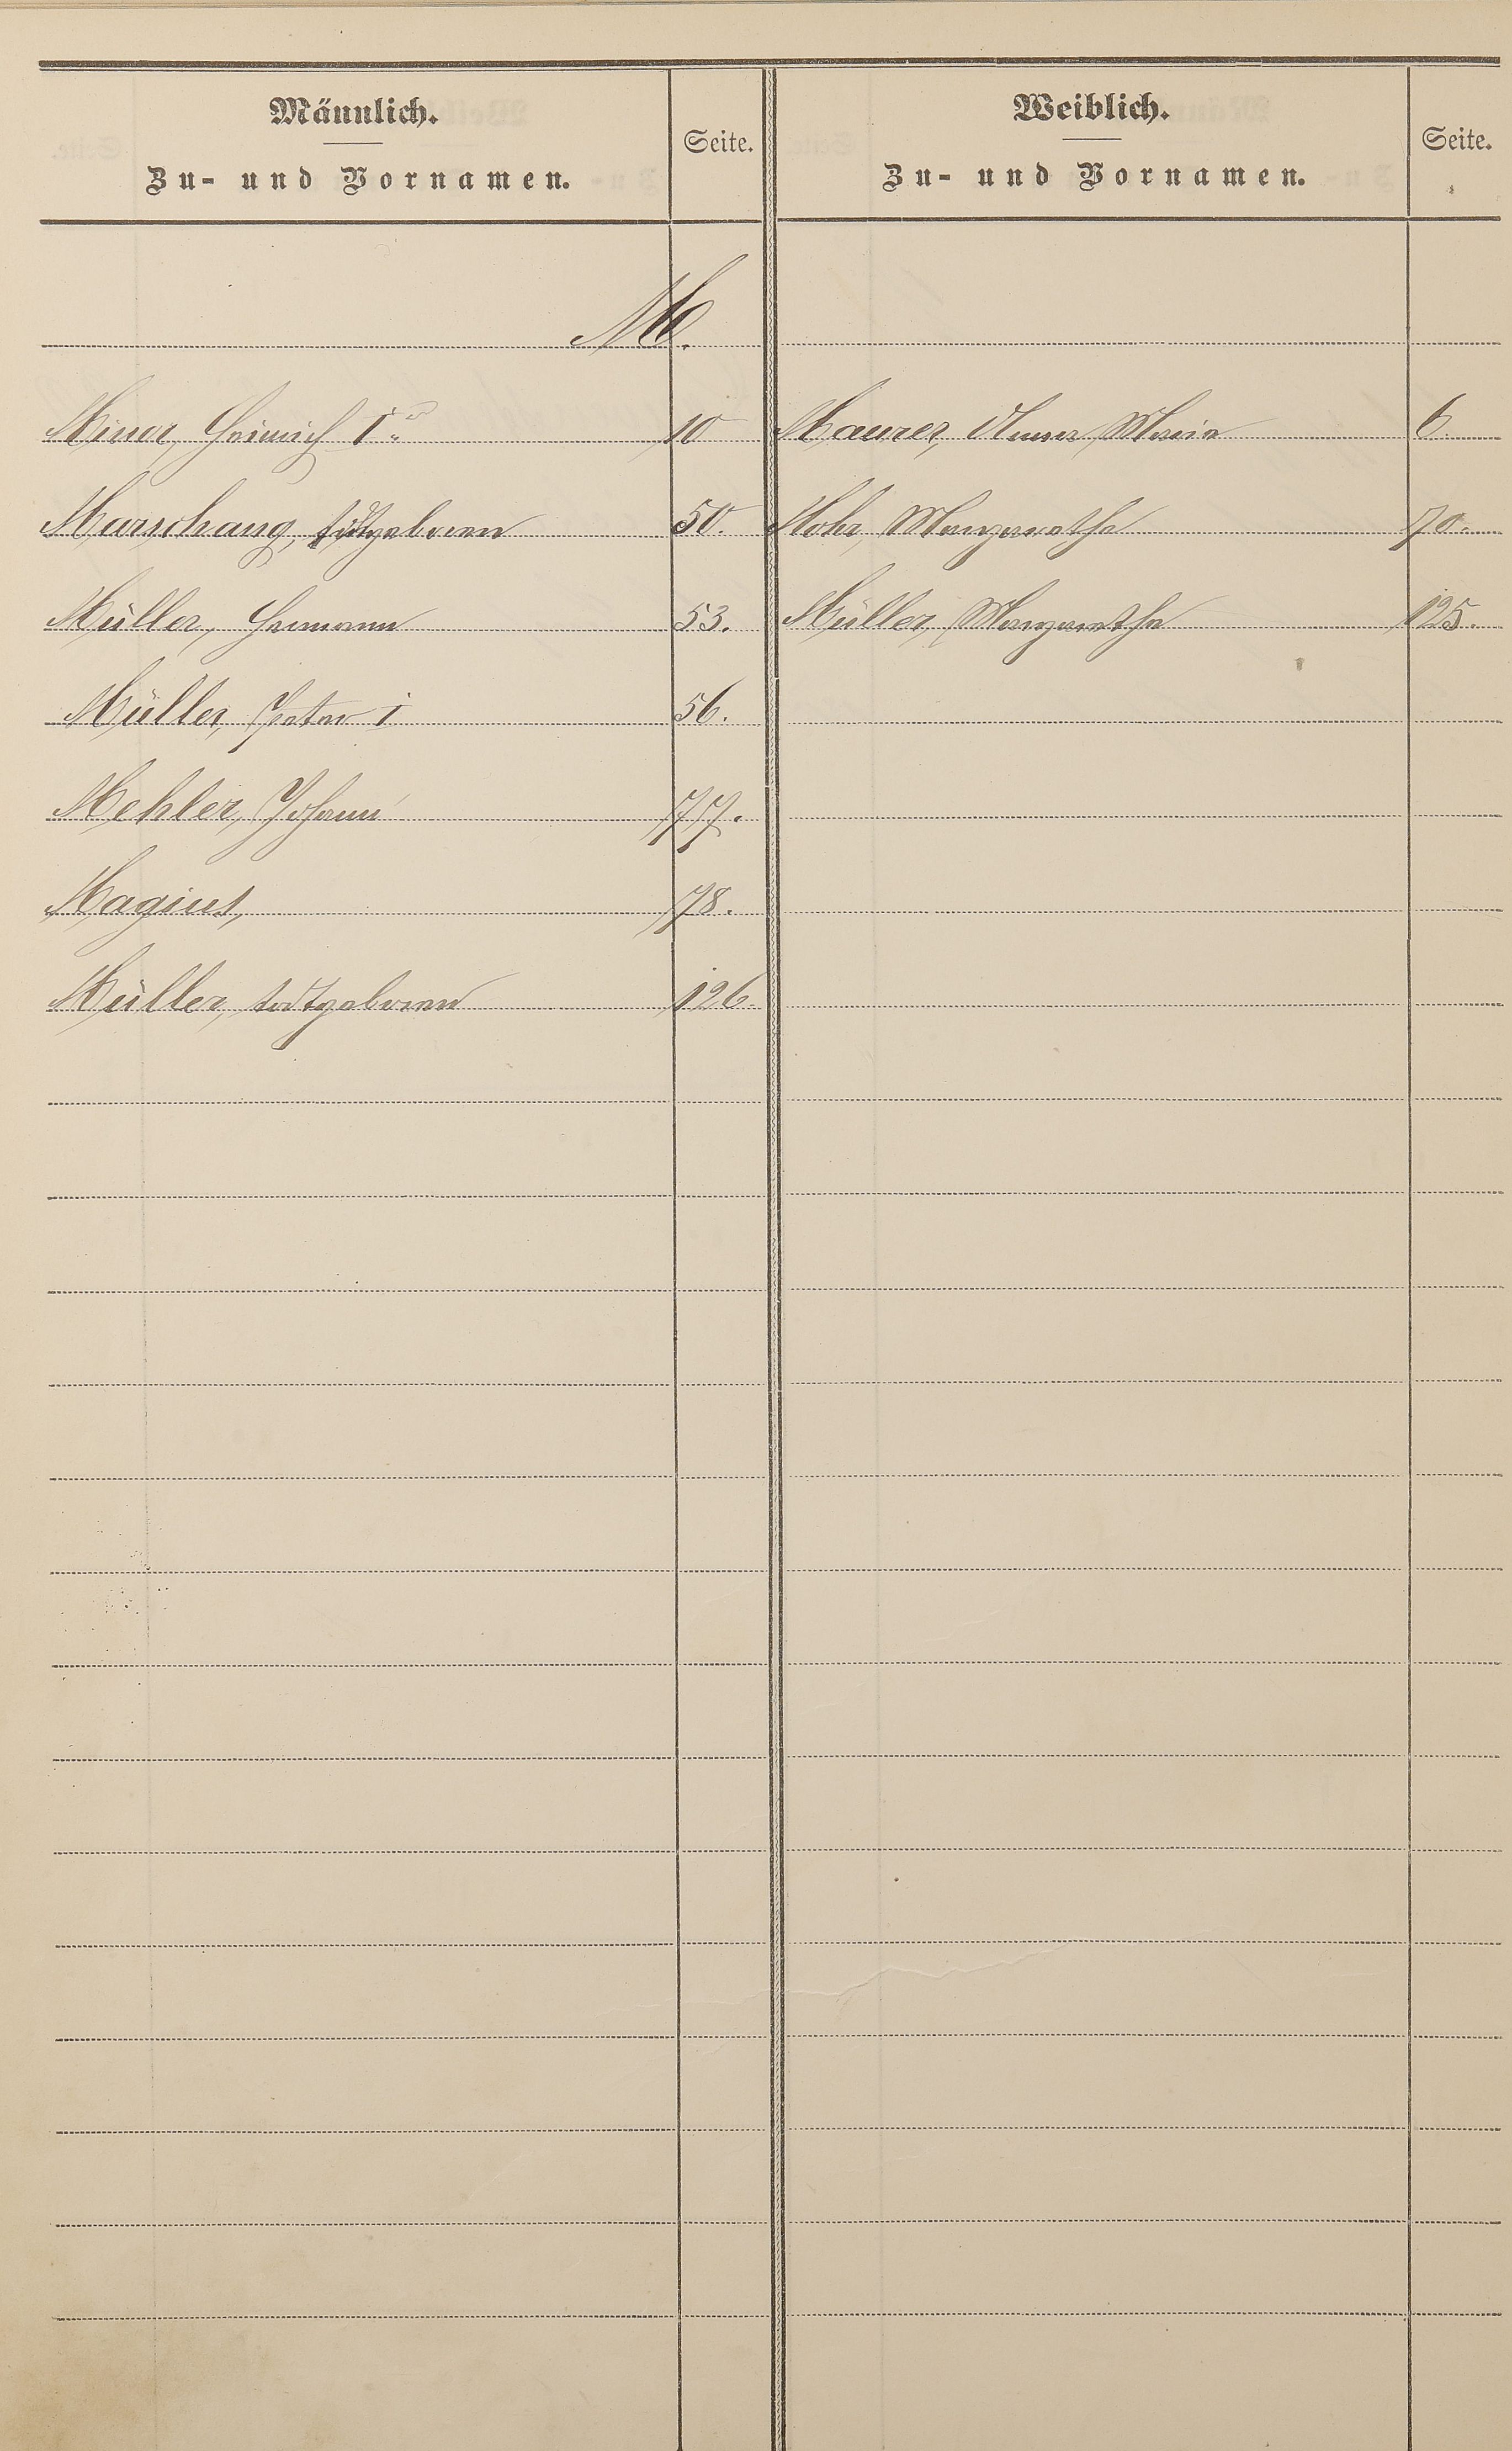 Männlich.
Zu- und Vornamen.
Seite.
Weiblich.
Zu- und Vornamen.
Seite.
M.
Miner, Heinrich I.r 10
Maurer, Anna Maria 6.
Marschang, todtgeboren 50.
Mohr, Margaretha 70.
Müller, Hermann 53.
Müller, Margaretha 125.
Müller, Peter I 56.
Mehler, Johann 77.
Magius, 78.
Müller, todtgeboren 126.